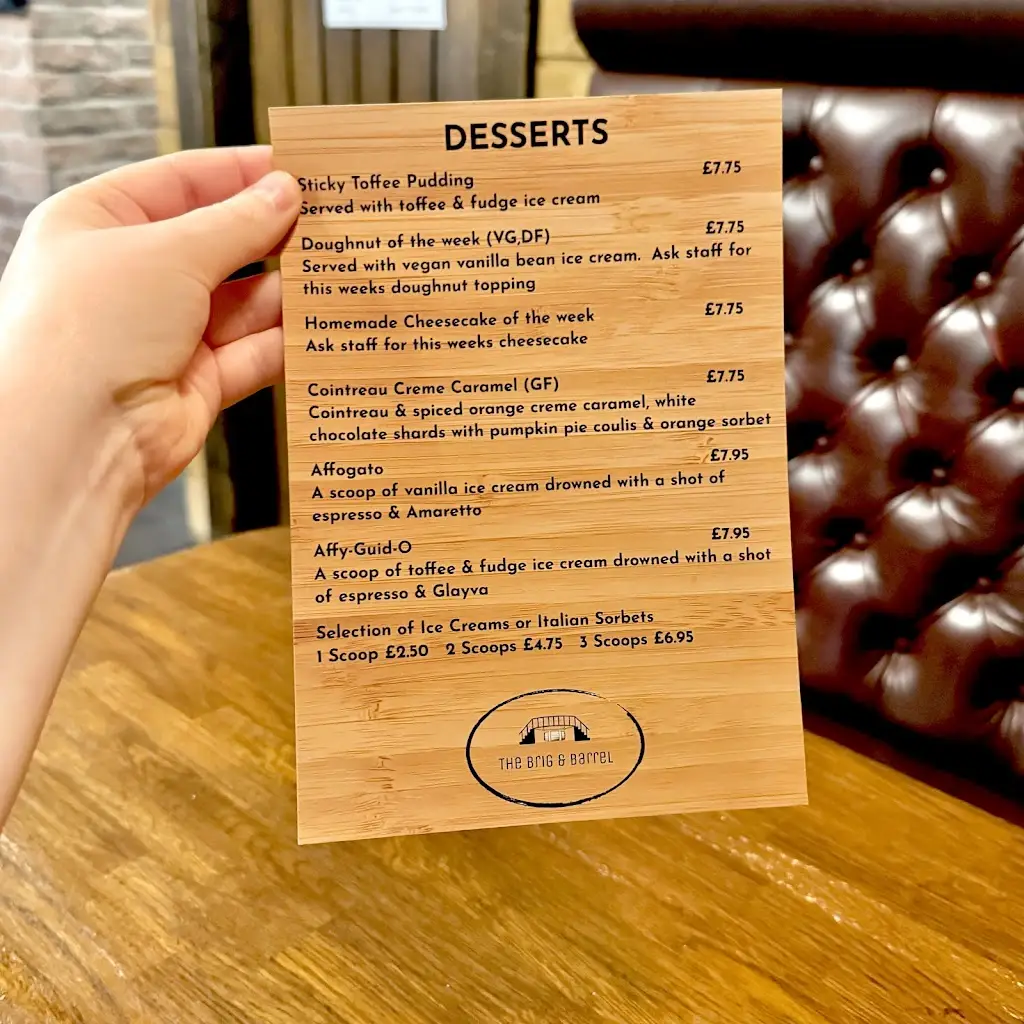 DESSERTS
Sticky Toffee Pudding £7.75
Served with toffee & fudge ice cream
Doughnut of the week (VG,DF) £7.75
Served with vegan vanilla bean ice cream. Ask staff for
this weeks doughnut topping
Homemade Cheesecake of the week £7.75
Ask staff for this weeks cheesecake
Cointreau Creme Caramel (GF) £7.75
Cointreau & spiced orange creme caramel, white
chocolate shards with pumpkin pie coulis & orange sorbet
Affogato £7.95
A scoop of vanilla ice cream drowned with a shot of
espresso & Amaretto
Affy-Guid-O £7.95
A scoop of toffee & fudge ice cream drowned with a shot
of espresso & Glayva
Selection of Ice Creams or Italian Sorbets
1 Scoop £2.50 2 Scoops £4.75 3 Scoops £6.95
THE BRIG & BARREL